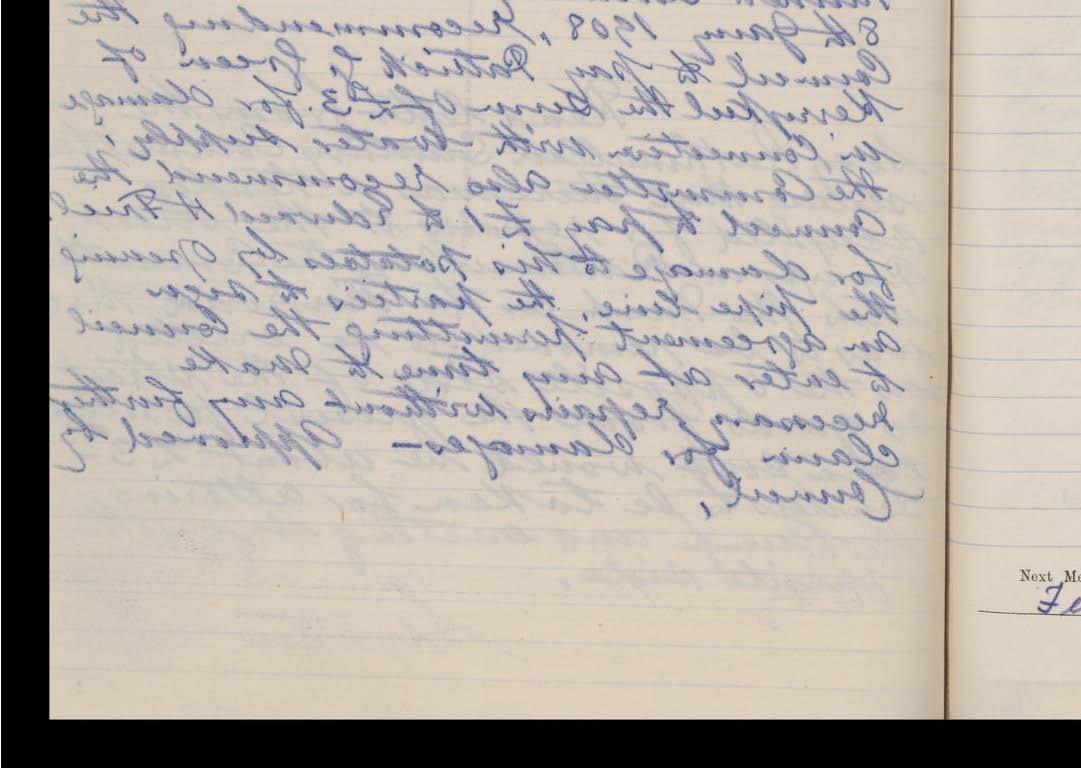 8th Jany 1908, recommending the
Council to pay Patrick G Green of
Kerrykeel the sum of £3 for damage
in connection with water supply,
the Committee also recommend the
Council to pay £1 to Edward H Friel
for damage to his potatoes by opening
the pipe line, the parties to sign
an agreement permitting the Council
to enter at any time to make
necessary repairs without any further
claim for damages — Approved by
Council,
Next Me
Fe